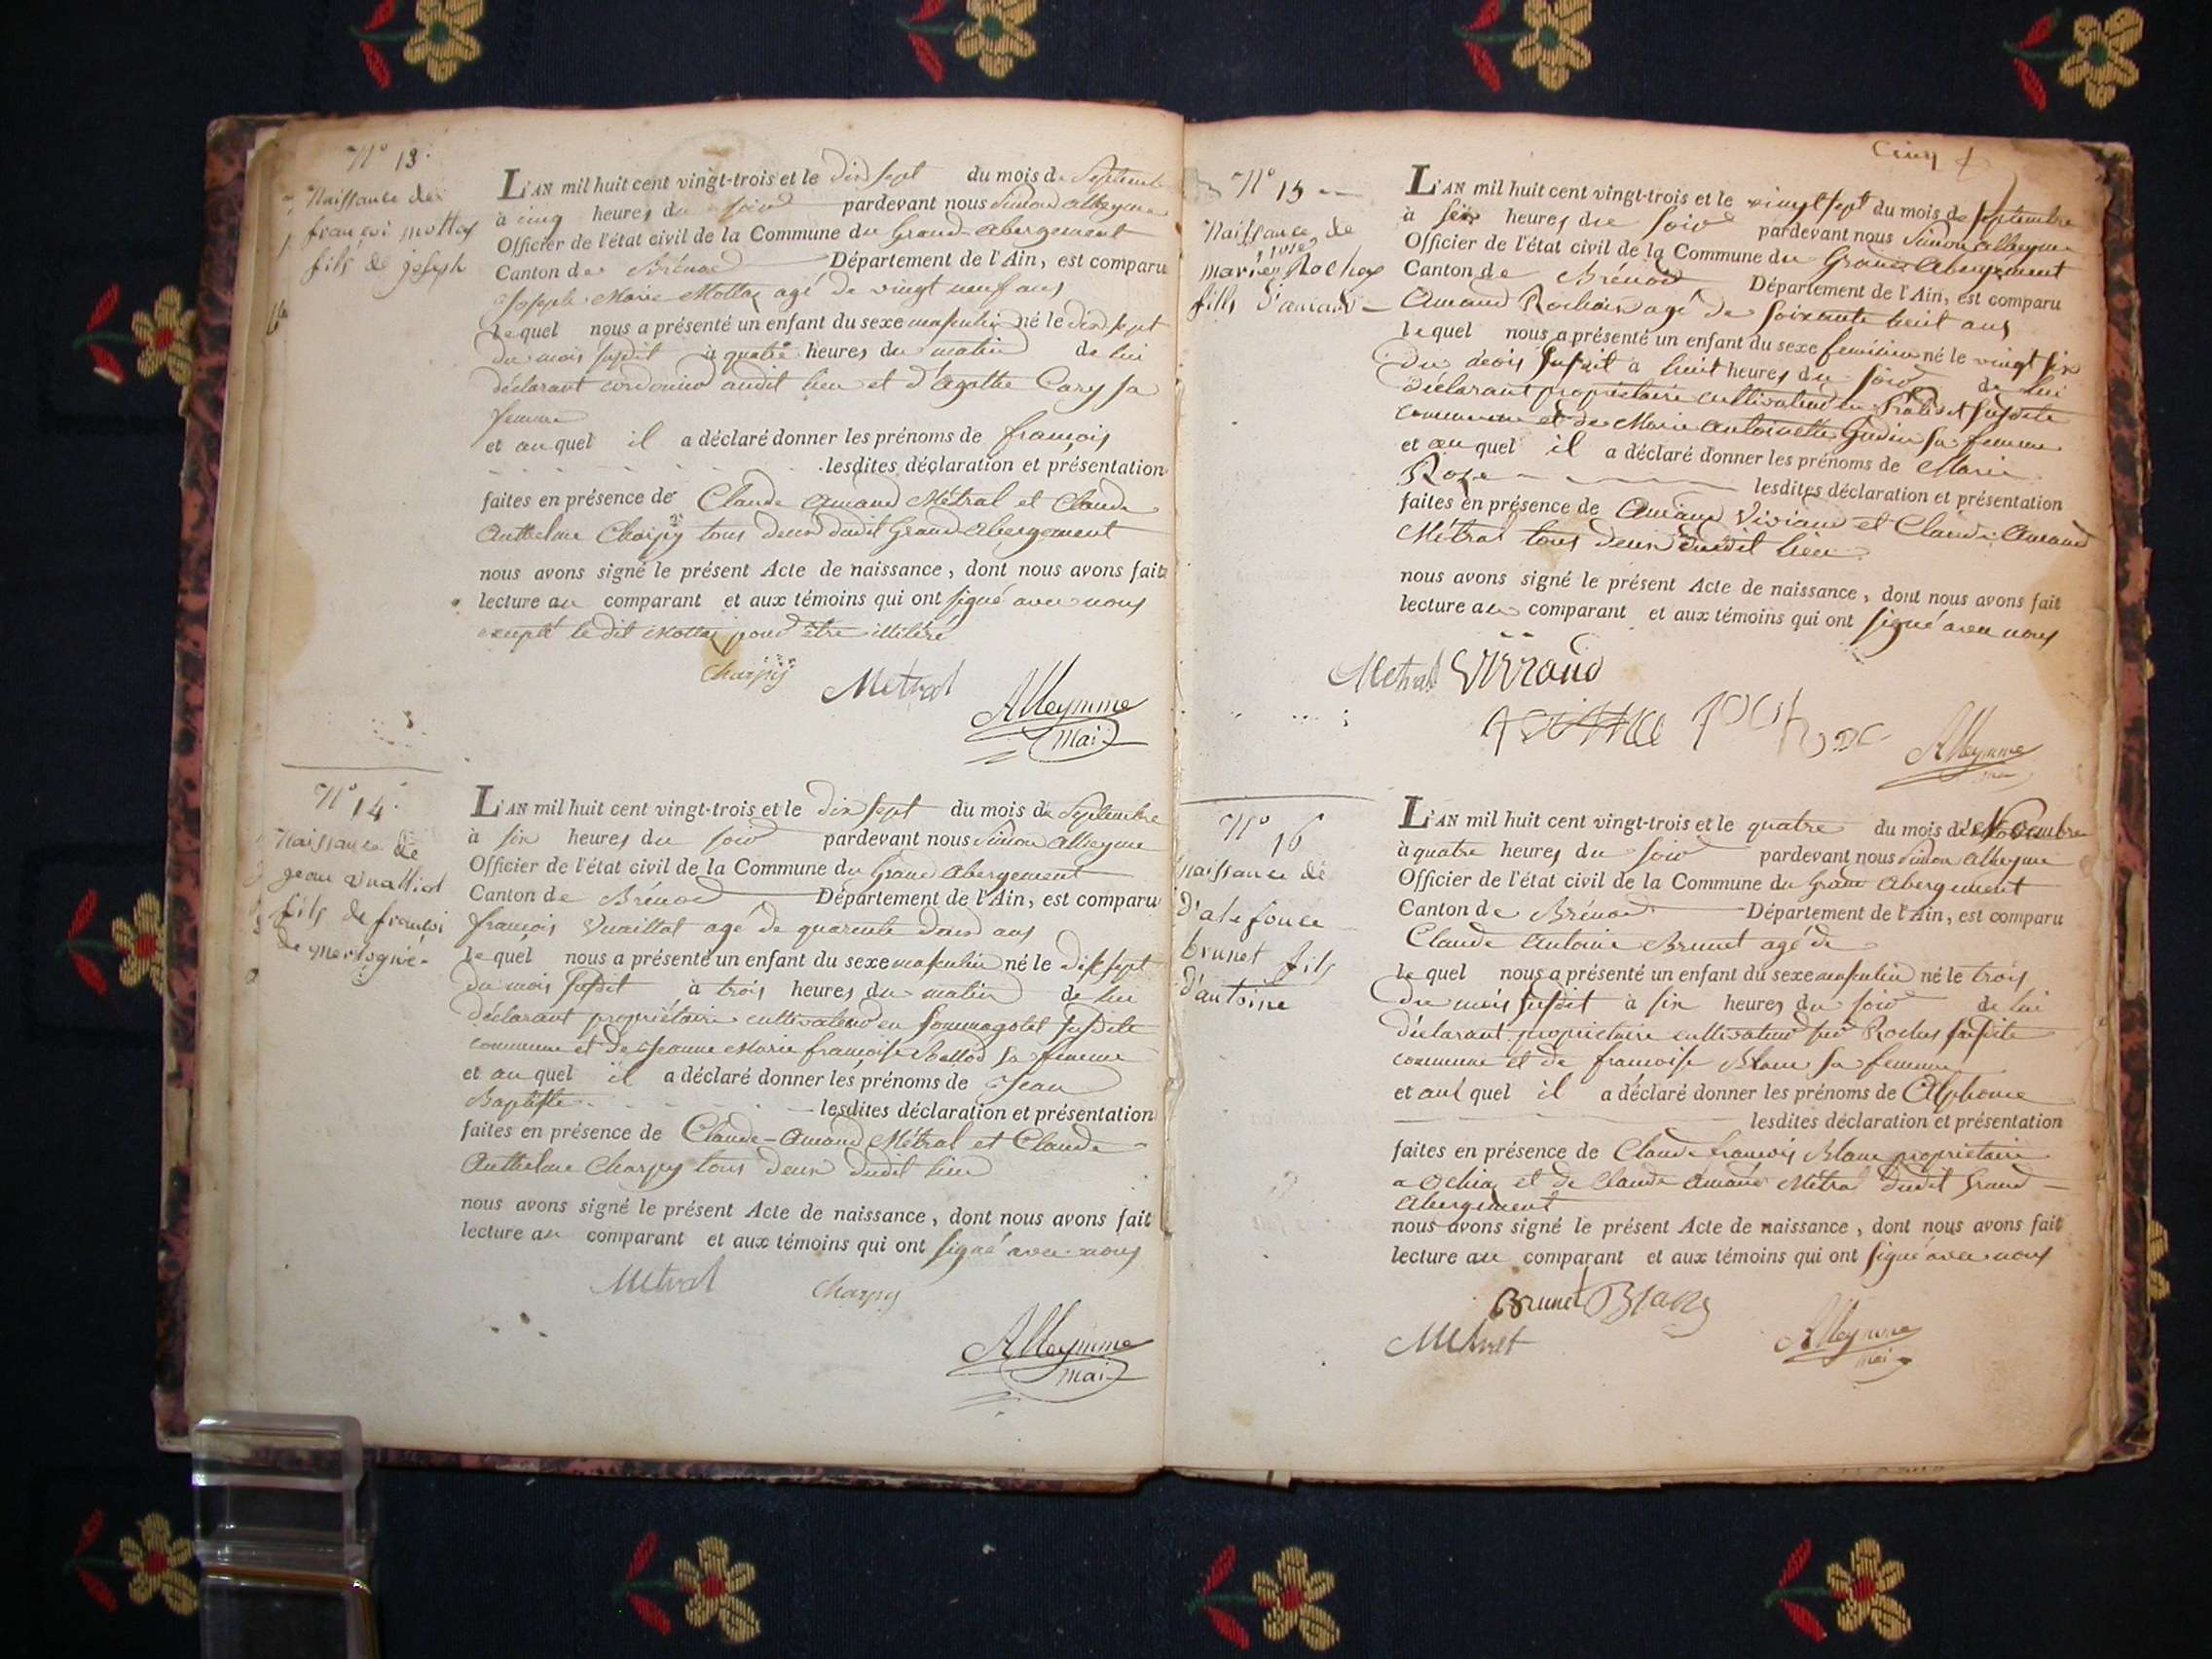 N° 13.
Naissance de
françoi mottaz
fils de joseph
L'AN mil huit cent vingt-trois et le dix sept du mois de Septembre
à cinq heures du soir pardevant nous Simon Alleyme
Officier de l'état civil de la Commune du Grand-Abergement
Canton de Brénod Département de l'Ain, est comparu
Joseph Marie Mottaz agé de vingt neuf ans
lequel nous a présenté un enfant du sexe masculin né le dix sept
du mois susdit à quatre heures du matin de lui
déclarant cordonier audit lieu et d'agathe Cary sa
femme
et auquel il a déclaré donner les prénoms de françois
lesdites déclaration et présentation
faites en présence de Claude Amand Métral et Claude
Anthelme Charpy tous deux dudit Grand Abergement
nous avons signé le présent Acte de naissance, dont nous avons fait
lecture au comparant et aux témoins qui ont signé avec nous
excepté le dit Mottaz pour être illitéré
Charpy Métral
Alleymme
mai
N° 14.
Naissance de
jean
fils de françoi
de
L'AN mil huit cent vingt-trois et le dix sept du mois de Septembre
à six heures du soir pardevant nous Simon Alleyme
Officier de l'état civil de la Commune du Grand Abergement
Canton de Brénod Département de l'Ain, est comparu
françois Vuaillat agé de quarente deux ans
lequel nous a présenté un enfant du sexe masculin né le dix sept
du mois susdit à trois heures du matin de lui
déclarant propriétaire cultivateur en susdite
commune et de Jeanne Marie françoise sa femme
et auquel il a déclaré donner les prénoms de Jean
Baptiste lesdites déclaration et présentation
faites en présence de Claude-Amand Métral et Claude
Anthelme Charpy tous deux dudit lieu
nous avons signé le présent Acte de naissance, dont nous avons fait
lecture au comparant et aux témoins qui ont signé avec nous
Métral Charpy
Alleymme
mai
Cinq
N° 15
Naissance de
rose
marie Rochaz
fille d'amand
L'AN mil huit cent vingt-trois et le vingt sept du mois de septembre
à six heures du soir pardevant nous Simon Alleyme
Officier de l'état civil de la Commune du Grand Abergement
Canton de Brénod Département de l'Ain, est comparu
Amand Rochaix agé de soixante huit ans
lequel nous a présenté un enfant du sexe feminin né le vingt six
du mois susdit à huit heures du soir de lui
déclarant propriétaire cultivateur en susdite
commune et de Marie Antoinette sa femme
et auquel il a déclaré donner les prénoms de Marie
Roze lesdites déclaration et présentation
faites en présence de Amand Viviand et Claude Amand
Métral tous deux dudit lieu
nous avons signé le présent Acte de naissance, dont nous avons fait
lecture au comparant et aux témoins qui ont signé avec nous
Métral
Alleymme
N° 16
naissance de
d'alefonce
brunet fils
d'antoine
L'AN mil huit cent vingt-trois et le quatre du mois de Novembre
à quatre heures du soir pardevant nous Simon Alleyme
Officier de l'état civil de la Commune du Grand Abergement
Canton de Brénod Département de l'Ain, est comparu
Claude Antoine Brunet agé de
lequel nous a présenté un enfant du sexe masculin né le trois
du mois susdit à six heures du soir de lui
déclarant propriétaire cultivateur sur Roches susdite
commune et de françoise Blanc sa femme
et auquel il a déclaré donner les prénoms de Alphonse
lesdites déclaration et présentation
faites en présence de Claude françois Blanc propriétaire
a Ochiaz et de Claude Amand Métral dudit Grand
Abergement
nous avons signé le présent Acte de naissance, dont nous avons fait
lecture au comparant et aux témoins qui ont signé avec nous
Brunet Blanc
Métral
Alleymme
mai